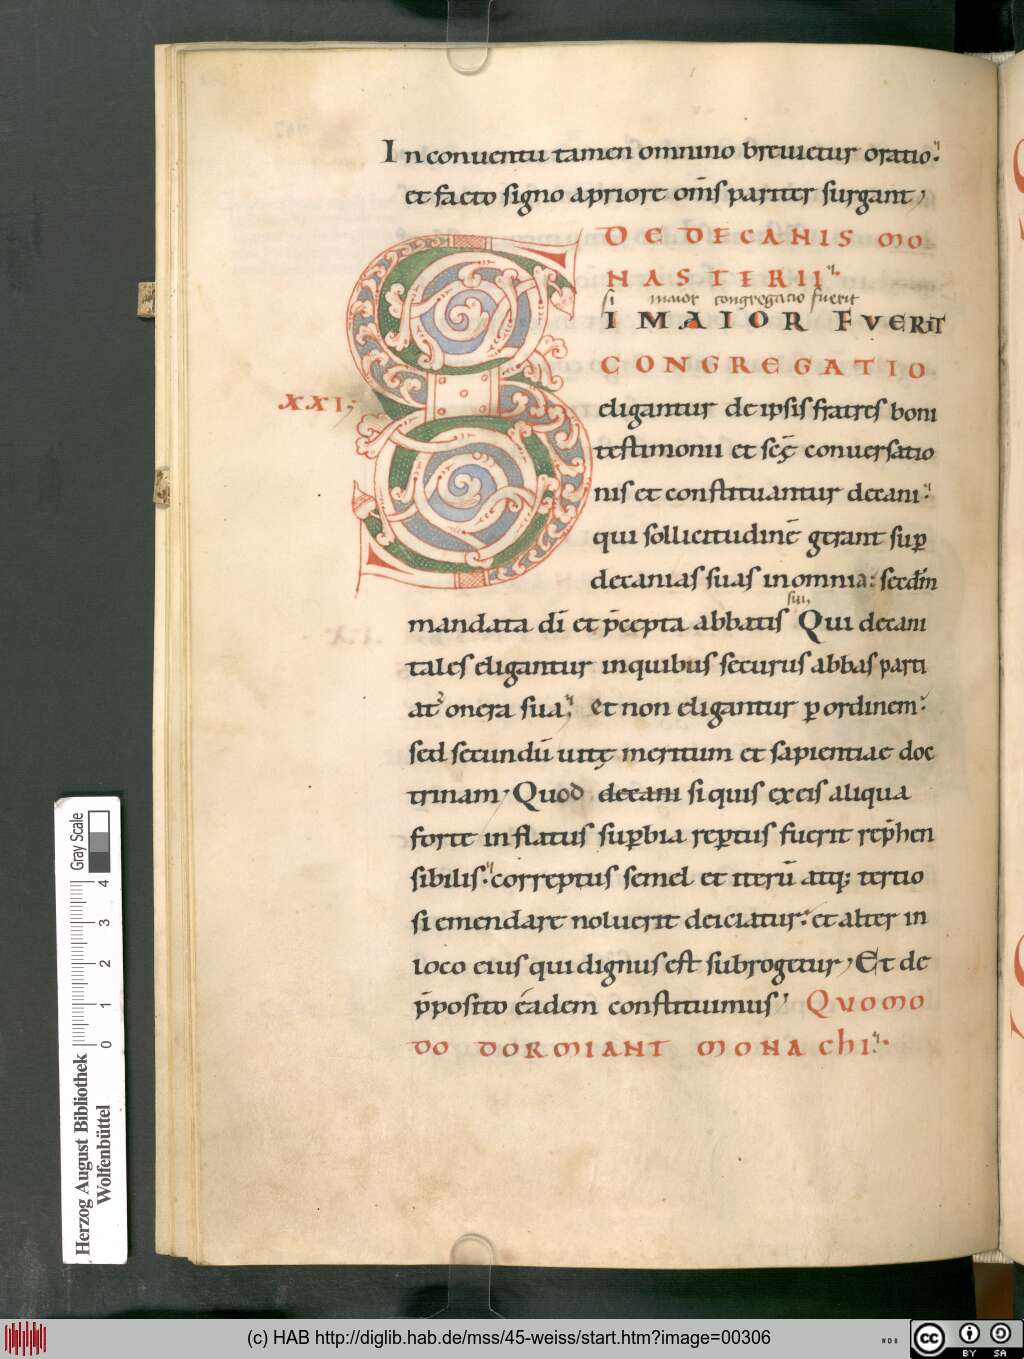 In conuentu tamen omnino breuietur oratio.
et facto signo apriore om̅s pariter surgant,
DE DECANIS MO
NASTERII.
si maior congregatio fuerit
SI MAIOR FVERIT
CONGREGATIO
XXI;
eligantur de ipsis fratres boni
testimonii et sc̅ę conuersatio
nis et constituantur decani.
qui sollicitudine̅ gerant sup̱
decanias suas in omnia: secdm̅
sui,
mandata di̅ et p̅cepta abbatis Qui decani
tales eligantur inquibus securus abbas parti
at² onera sua. et non eligantur ꝑ ordinem.
sed secundu̅ uitę meritum et sapientiae doc
trinam, Quod decani si quis ex eis aliqua
forte inflatus sup̱bia rep̱tus fuerit rep̅hen
sibilis. correptus semel et iteru̅ atq; tertio
si emendare noluerit deiciatur. et alter in
loco eius qui dignus est subrogetur, Et de
p̅posito ea̅dem constituimus, QUOMO
DO DORMIANT MONAchI.
Gray Scale
0 1 2 3 4
Herzog August Bibliothek
Wolfenbüttel
(c) HAB http://diglib.hab.de/mss/45-weiss/start.htm?image=00306
WDB
cc BY SA